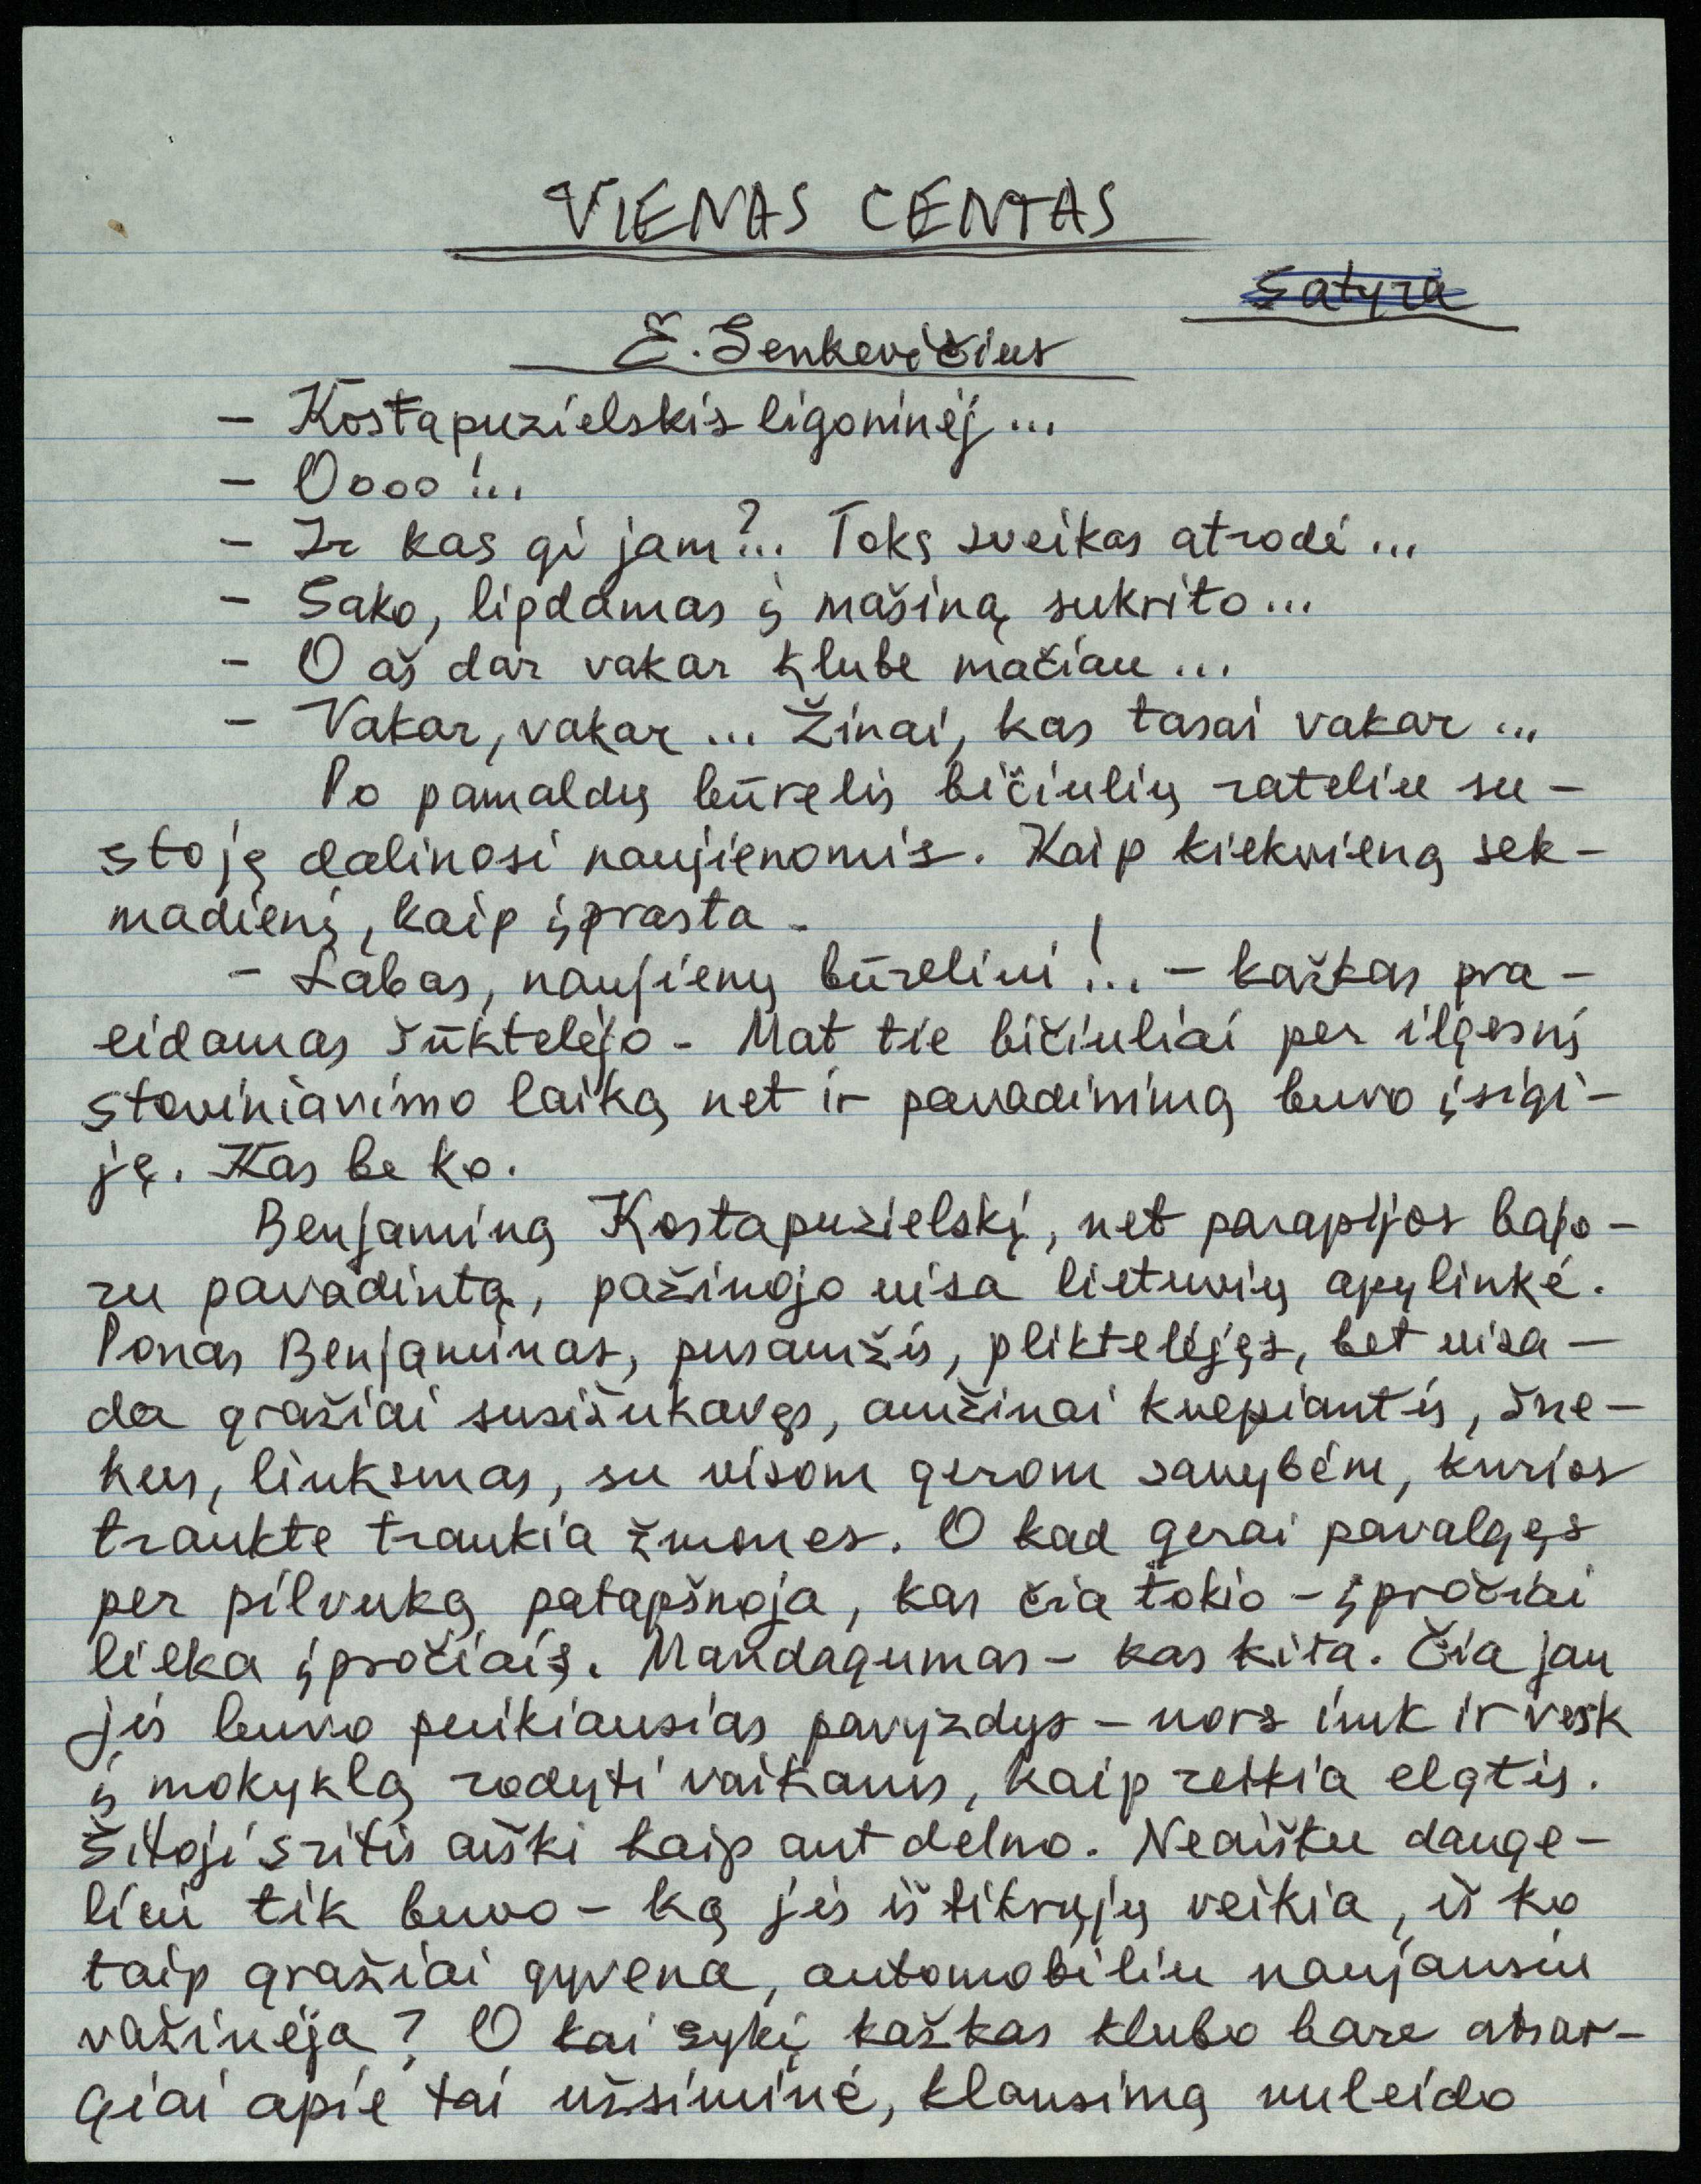 VIENAS CENTAS
Satyra
E. Senkevičius
- Kostapuzielskis ligoninėj...
- Oooo!..
- Ir kas gi jam?.. Toks sveikas atrodė...
- Sako, lipdamas į mašiną sukrito...
- O aš dar vakar klube mačiau...
- Vakar, vakar... Žinai, kas tasai vakar...
Po pamaldų būrelis bičiulių rateliu su-
stoję dalinosi naujienomis. Kaip kiekvieną sek-
madienį, kaip įprasta.
- Labas, naujienų būreliui!.. - kažkas pra-
eidamas šūktelėjo. Mat tie bičiuliai per ilgesnį
stoviniavimo laiką net ir pavadinimą buvo įsigi-
ję. Kas be ko.
Benjaminą Kostapuzielskį, net parapijos bajo-
ru pavadintą, pažinojo visa lietuvių apylinkė.
Ponas Benjaminas, pusamžis, pliktelėjęs, bet visa-
da gražiai susišukavęs, amžinai kvepiantis, šne-
kus, linksmas, su visom gerom savybėm, kurios
traukte traukia žmones. O kad gerai pavalgęs
per pilvuką patapšnoja, kas čia tokio - įpročiai
lieka įpročiais. Mandagumas - kas kita. Čia jau
jis buvo puikiausias pavyzdys - nors imk ir vesk
į mokyklą rodyti vaikams, kaip reikia elgtis.
Šitoji sritis aiški kaip ant delno. Neaišku dauge-
liui tik buvo - ką jis iš tikrųjų veikia, iš ko
taip gražiai gyvena, automobiliu naujausiu
važinėja? O kai sykį kažkas klubo bare atsar-
giai apie tai užsiminė, klausimą nuleido